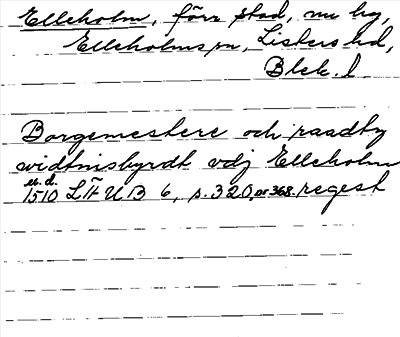 Elleholm, förr stad, nu by,
Elleholms sn, Listers hd,
Blek. l
Borgemestere och raadtz
vidtnisbyrdt vdj Elleholm
e. d.
1510 LÄUB 6, s. 320, nr 368. regest